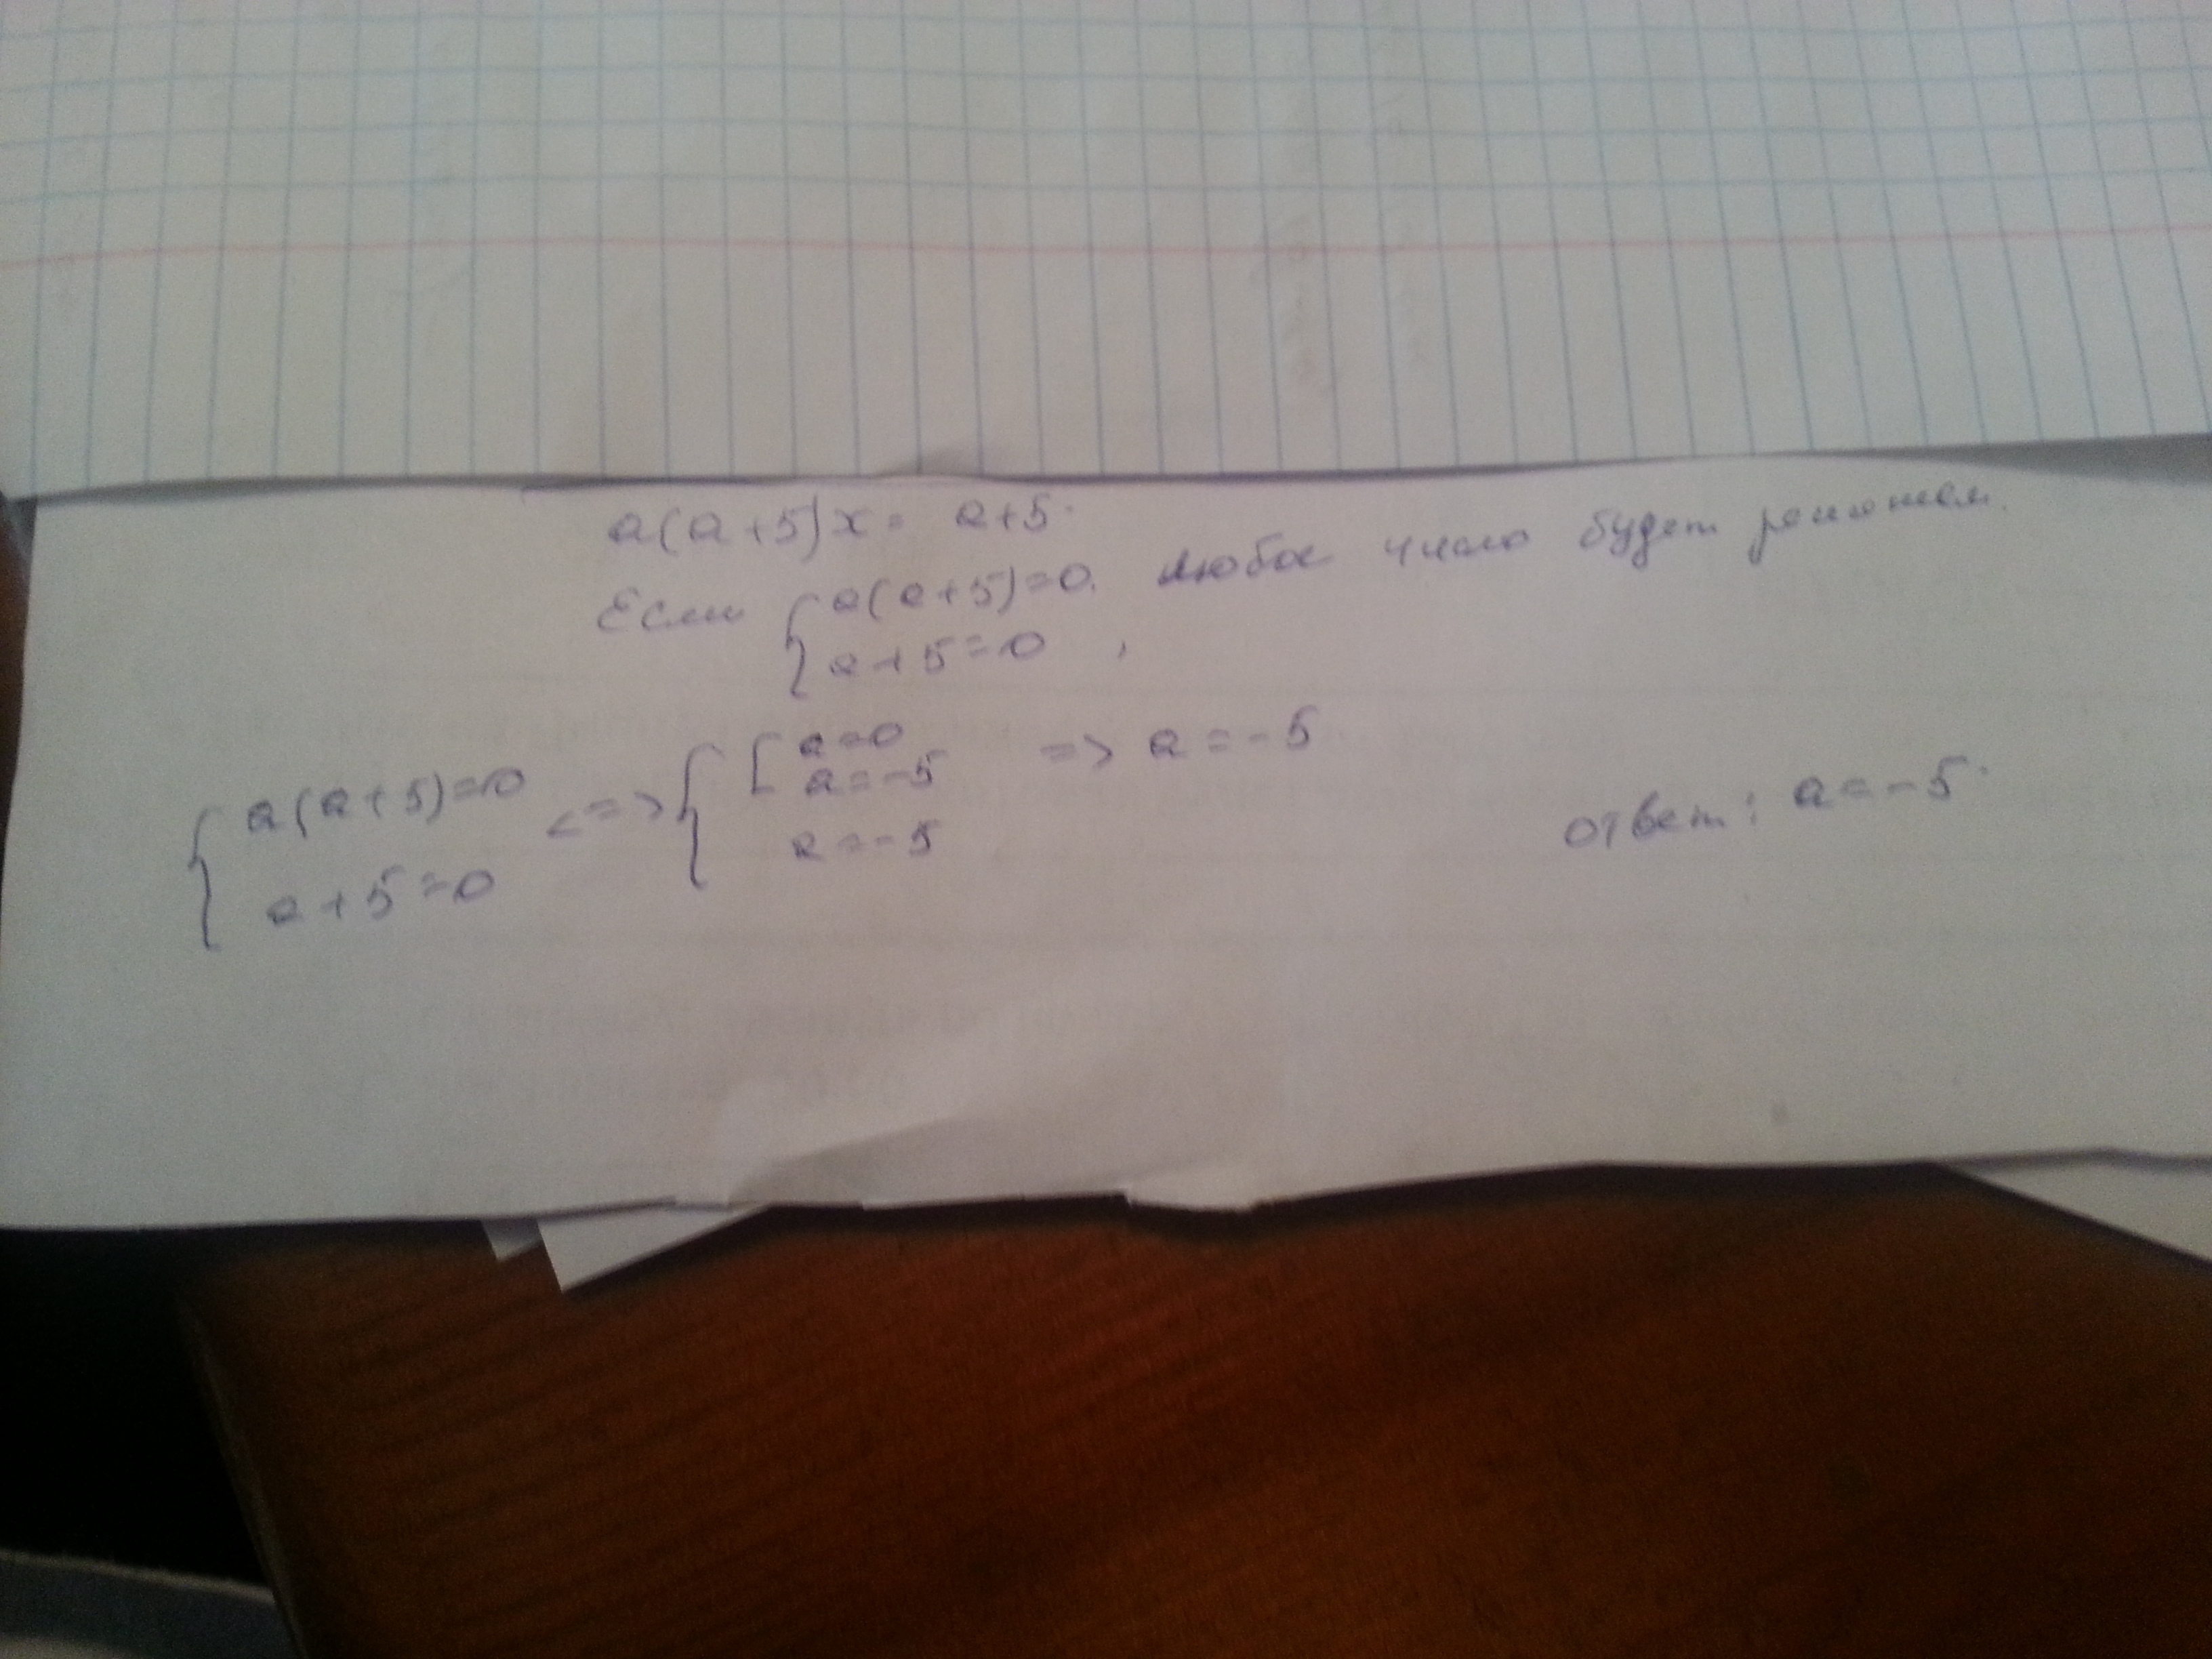 a(a+5)x = a+5.
Если { a(a+5)=0. Любое число будет решением.
a+5=0 ,
{ a(a+5)=0 <=> { [ a=0 => a=-5
a=-5
a+5=0 a=-5
ответ: a=-5.